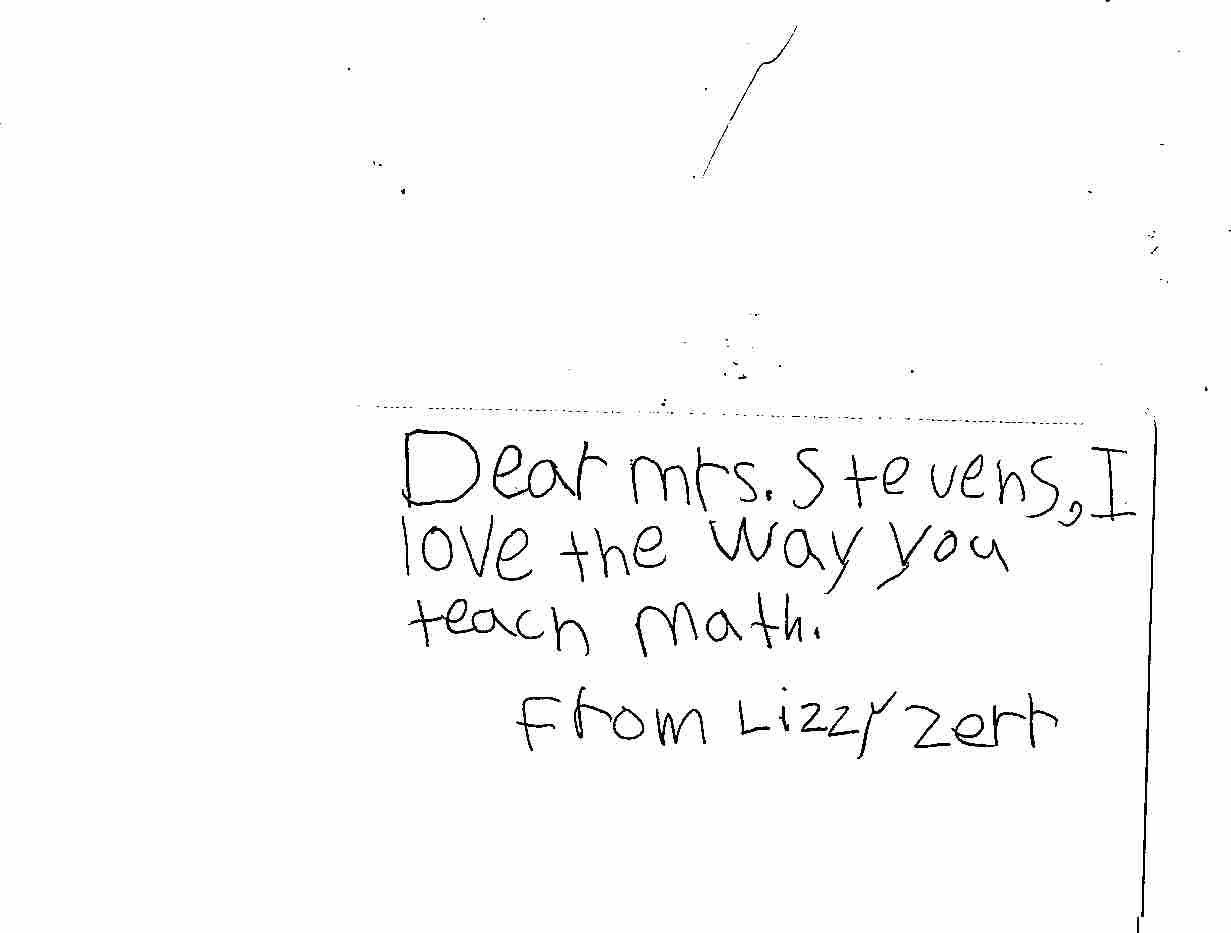 Dear mrs. Stevens, I
love the way you
teach math.
From Lizzy Zerr